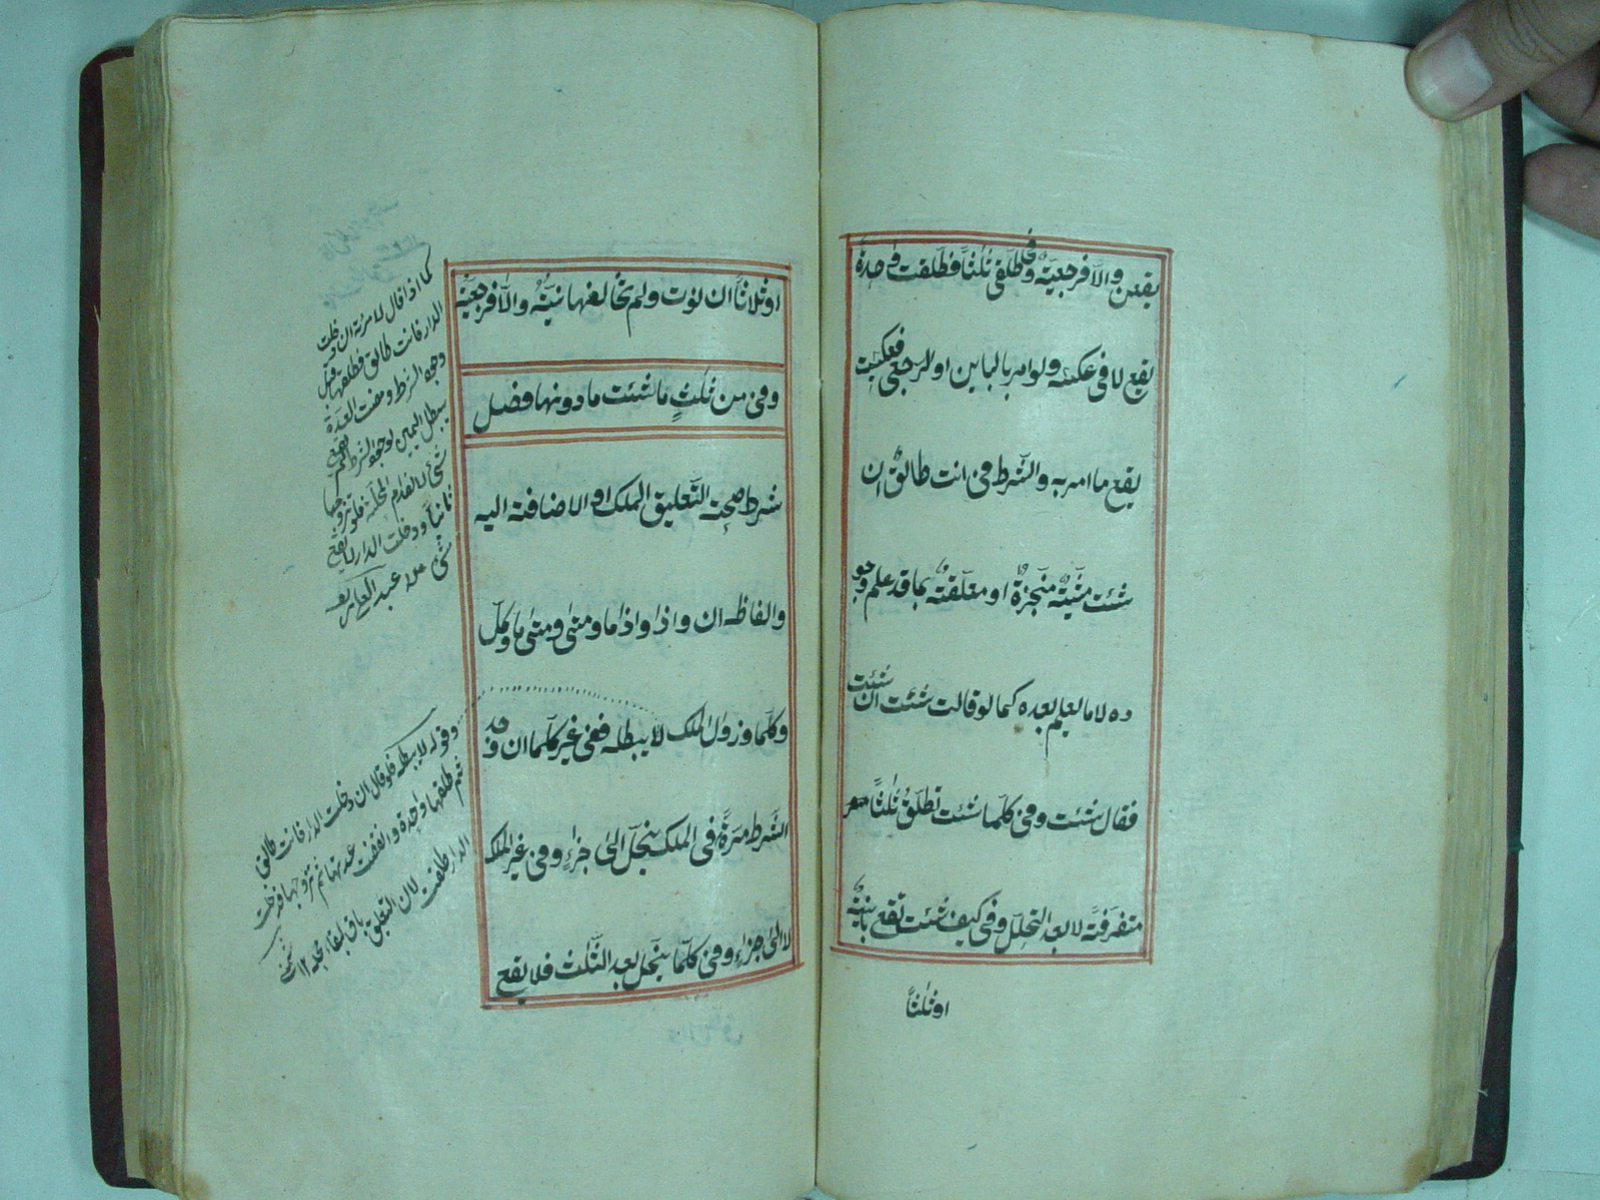 يقعن والا فرجعية وفي طلقي ثلثا فطلقت واحدة
يقع لا في عكسه ولو امر بالباين او الرجعي فعكست
يقع ما امر به والشرط في انت طالق ان
شئت مشية منجزة او معلقة بما قد علم وجو
ده لا ما لم يعلم بعده كما لو قالت شئت ان شئت
فقال شئت وفي كلما شئت تطلق ثلثا
متفرقة لا بعد التحلل وفي كيف شئت تقع باينة
او ثلثا
او ثلاثا ان نوت ولم تخالفها نيته والا فرجعية
وفي من ثلث ما شئت ما دونها فصل
شرط صحت التعليق الملك او الاضافة اليه
والفاظه ان واذا واذا ما ومتى ومتى ما وكل
وكلما وزوال الملك لا يبطله ففي غير كلما ان وجد
الشرط مرة في الملك ينحل الى جزاء وفي غير الملك
لا الى جزاء وفي كلما ينحل بعد الثلث فلا يقع
كما اذا قال لامرئة ان دخلت
الدار فانت طالق فطلقها قبل
وجود الشرط ومضت العدة
يبطل اليمين لوجود الشرط ولم يقع
شئ لانعدام المحلية فلو تزوجها
ثانيا ودخلت الدار لا يقع
شئ عبد العلي
وقوله لا يبطله فلو قال ان دخلت الدار فانت طالق
ثم طلقها واحدة وانقضت عدتها ثم تزوجها فدخلت
الدار طلقت لان التعليق باق لبقاء محله ١٢